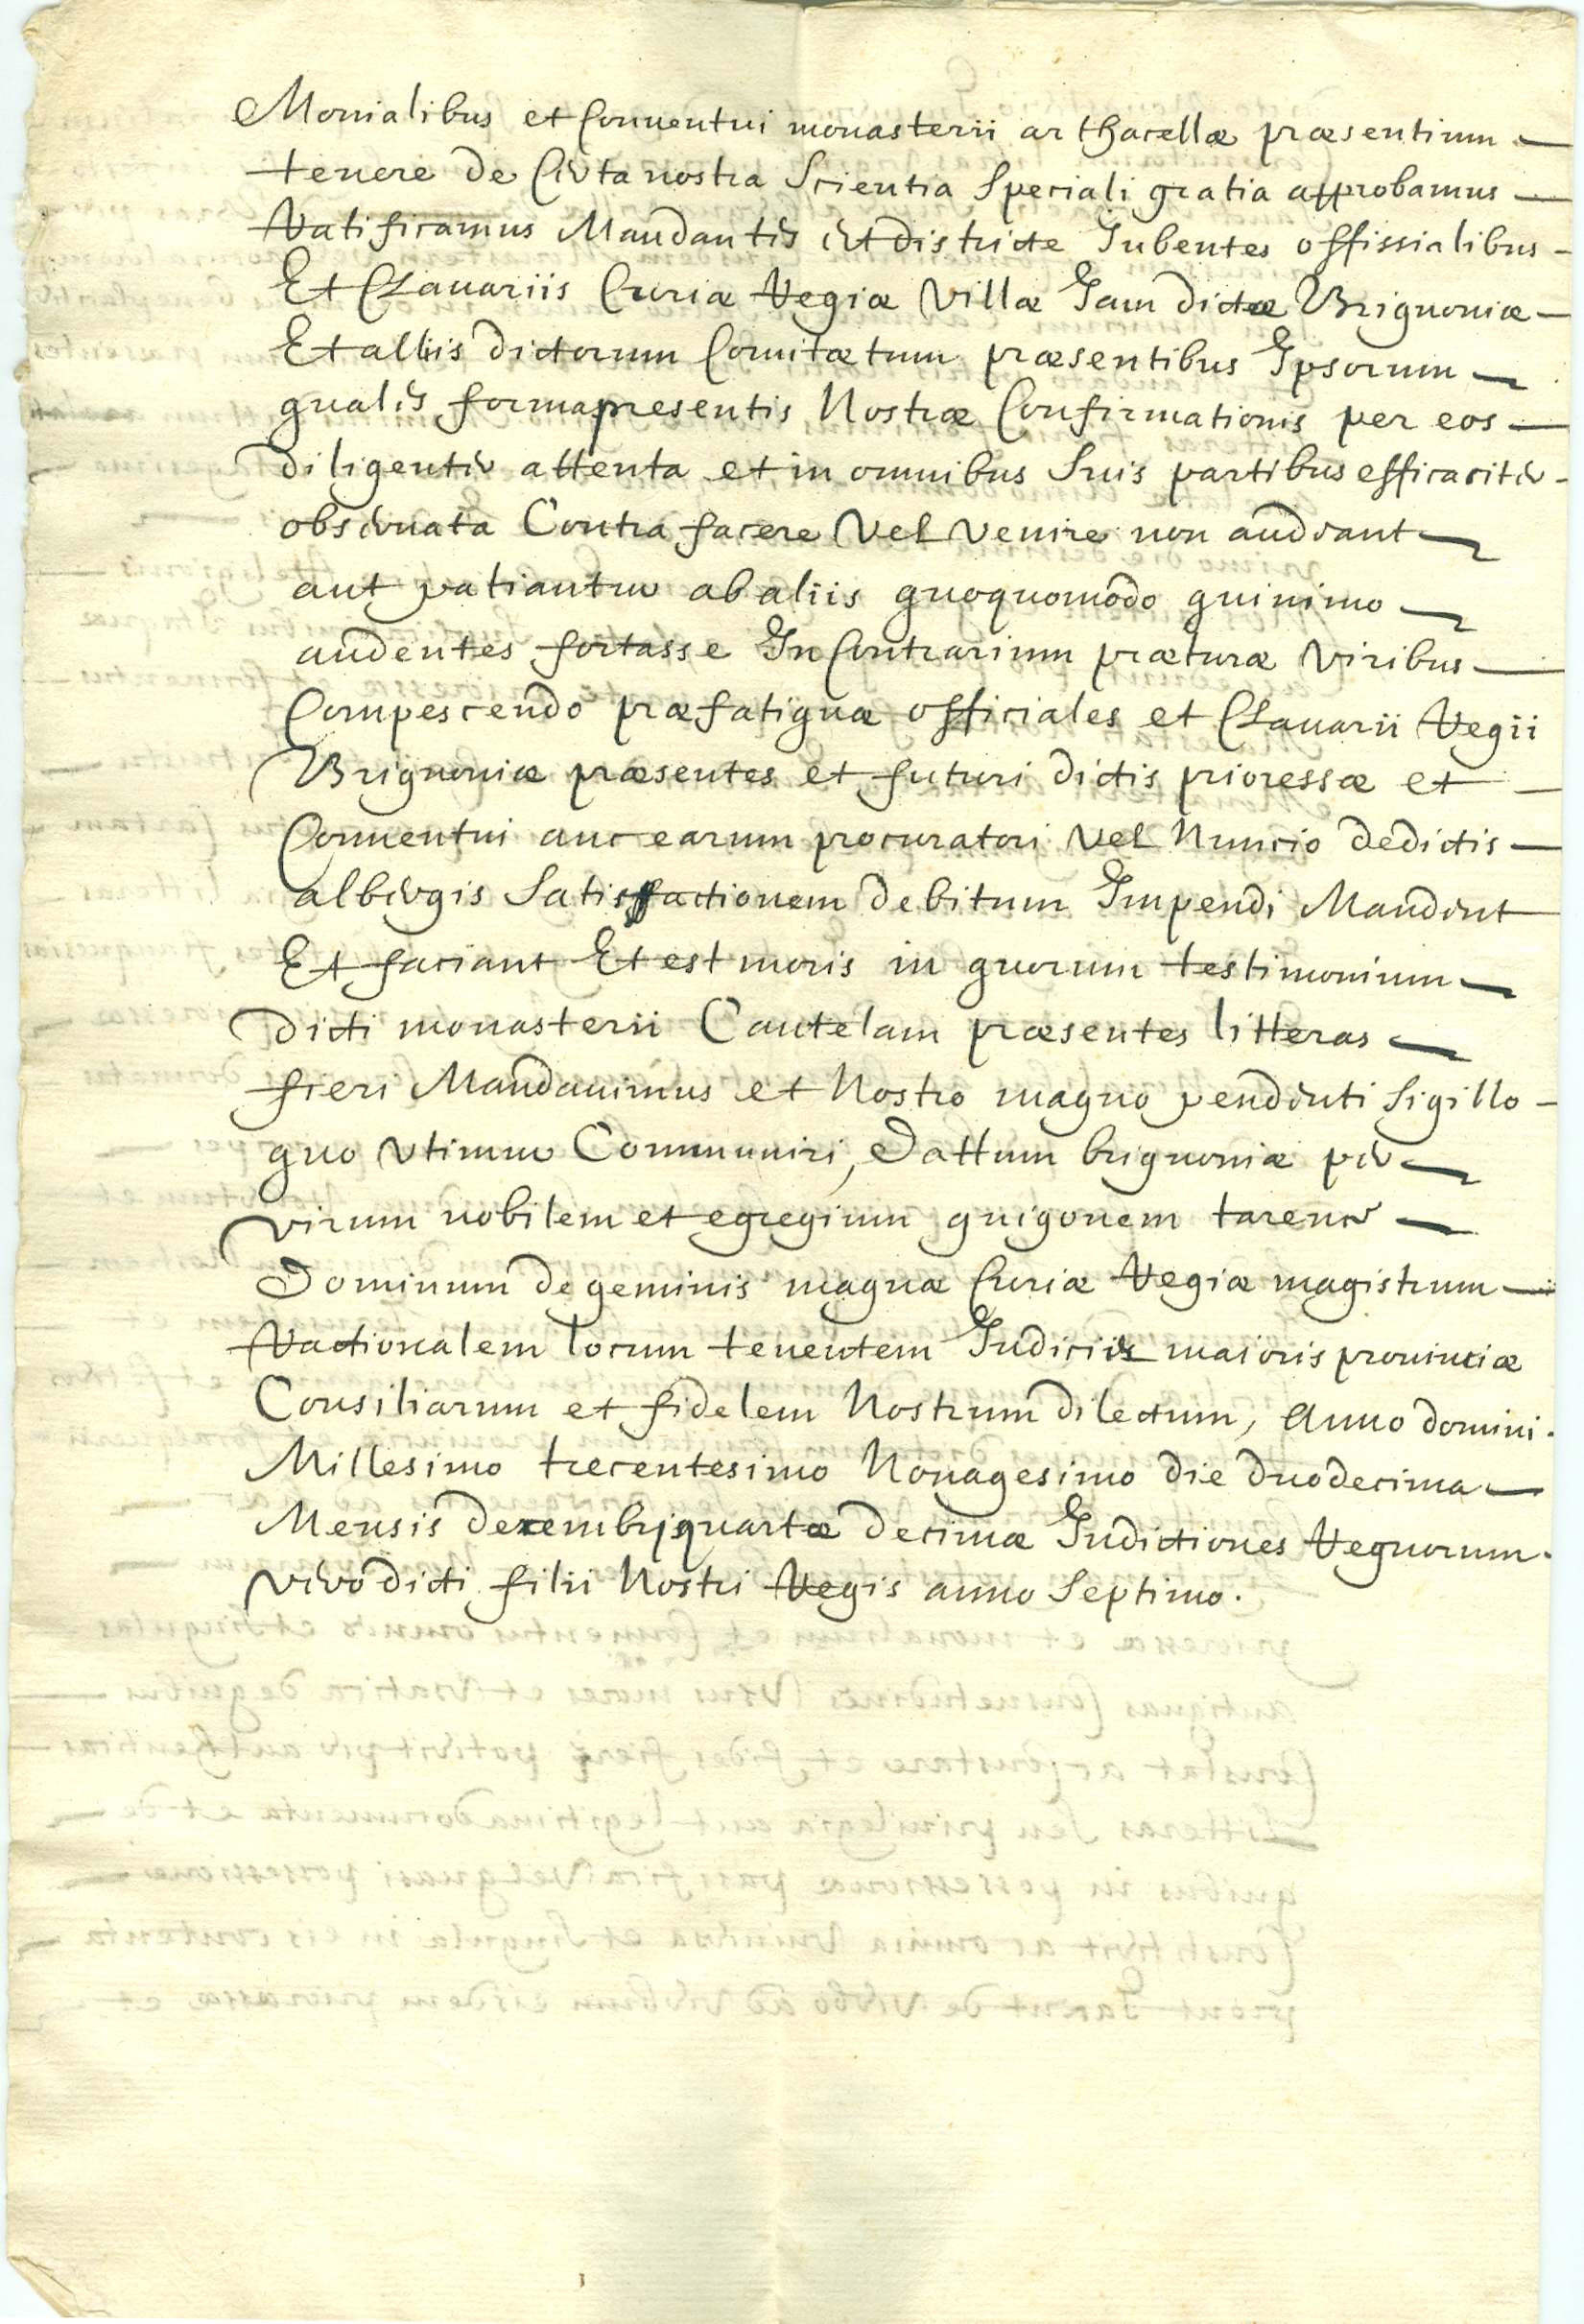 Monialibus et Conuentui monasterii ar thacellæ præsentium
tenere de Certa nostra Scientia Speciali gratia approbamus
Ratificamus Mandantes et districte Iubentes offissialibus
Et Clauariis Curiæ Regiæ Villæ Iam dictæ Brignoniæ
Et alliis dictorum Comitætum præsentibus Ipsorum
qualis forma presentis Nostræ Confirmationis per eos
diligenter attenta et in omnibus Suis partibus efficaciter
obseruata Contra facere Vel Venire non audeant
aut patiantur ab aliis quoquomodo quinimo
audentes fortasse In Contrarium præturæ Viribus
Compescendo præfatiquæ officiales et Clauarii Regii
Brignoniæ præsentes et futuri dictis prioressæ et
Conuentui auc earum procuratori Vel Nuncio dedictis
albergis Satisfactionem debitum Impendi Mandent
Et faciant Et est moris in quorum testimonium
dicti monasterii Cautelam præsentes litteras
fieri Mandauimus et Nostro magno pendenti Sigillo
quo Vtimur Communiri, Dattum brignoniæ per
virum nobilem et egregium guigonem tarener
Dominum de geminis magnæ Curiæ Regiæ magistrum
Ractionalem locum tenentem Iudiciis maioris prouinciæ
Consiliarum et fidelem Nostrum dilectum, anno domini.
Millesimo trecentesimo Nonagesimo die duodecima
Mensis decembris quartæ decimæ Indictiones Regnorum.
vero dicti filii Nostri Regis anno Septimo.